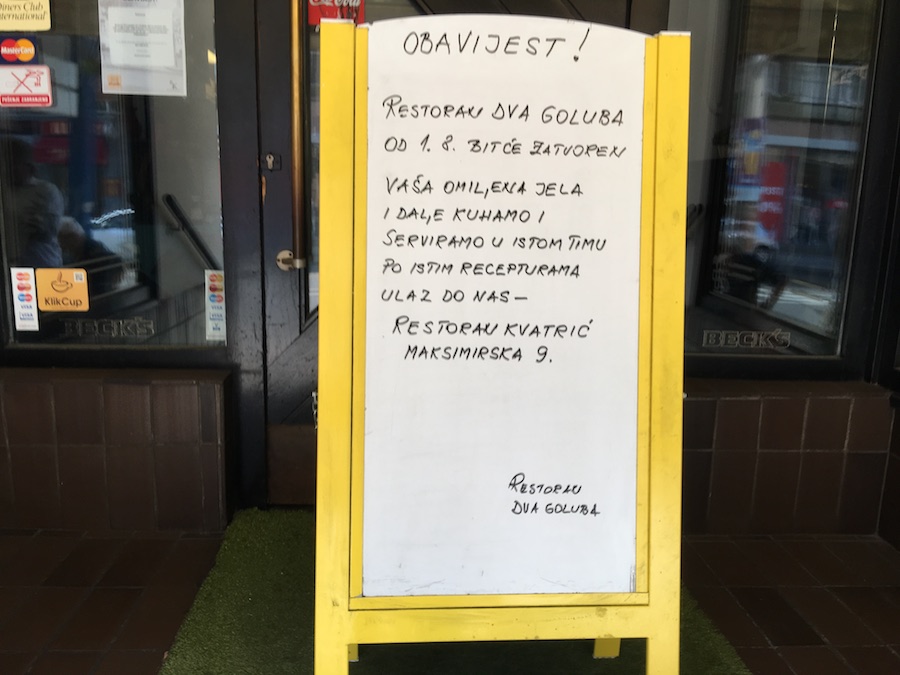 Diners Club
International
MasterCard
PUŠENJE ZABRANJENO
OBAVIJEST!
RESTORAN DVA GOLUBA
OD 1. 8. BIT ĆE ZATVOREN
VAŠA OMILJENA JELA
I DALJE KUHAMO I
SERVIRAMO U ISTOM TIMU
PO ISTIM RECEPTURAMA
ULAZ DO NAS —
RESTORAN KVATRIĆ
MAKSIMIRSKA 9.
RESTORAN
DVA GOLUBA
KlikCup
BECK'S
BECK'S